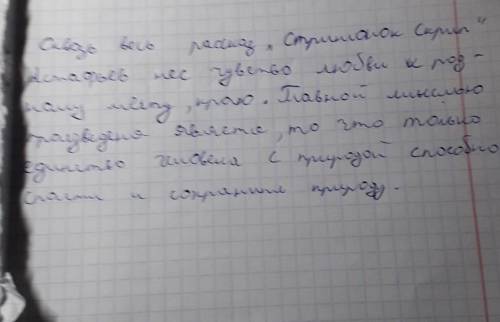 Сквозь весь рассказ „Стрижонок Скрип"
Астафьев нес чувство любви к род-
ному месту, краю. Главной мыслью
произведена явлется, то что только
единство человека с природой способно
спасти и сохранить природу.